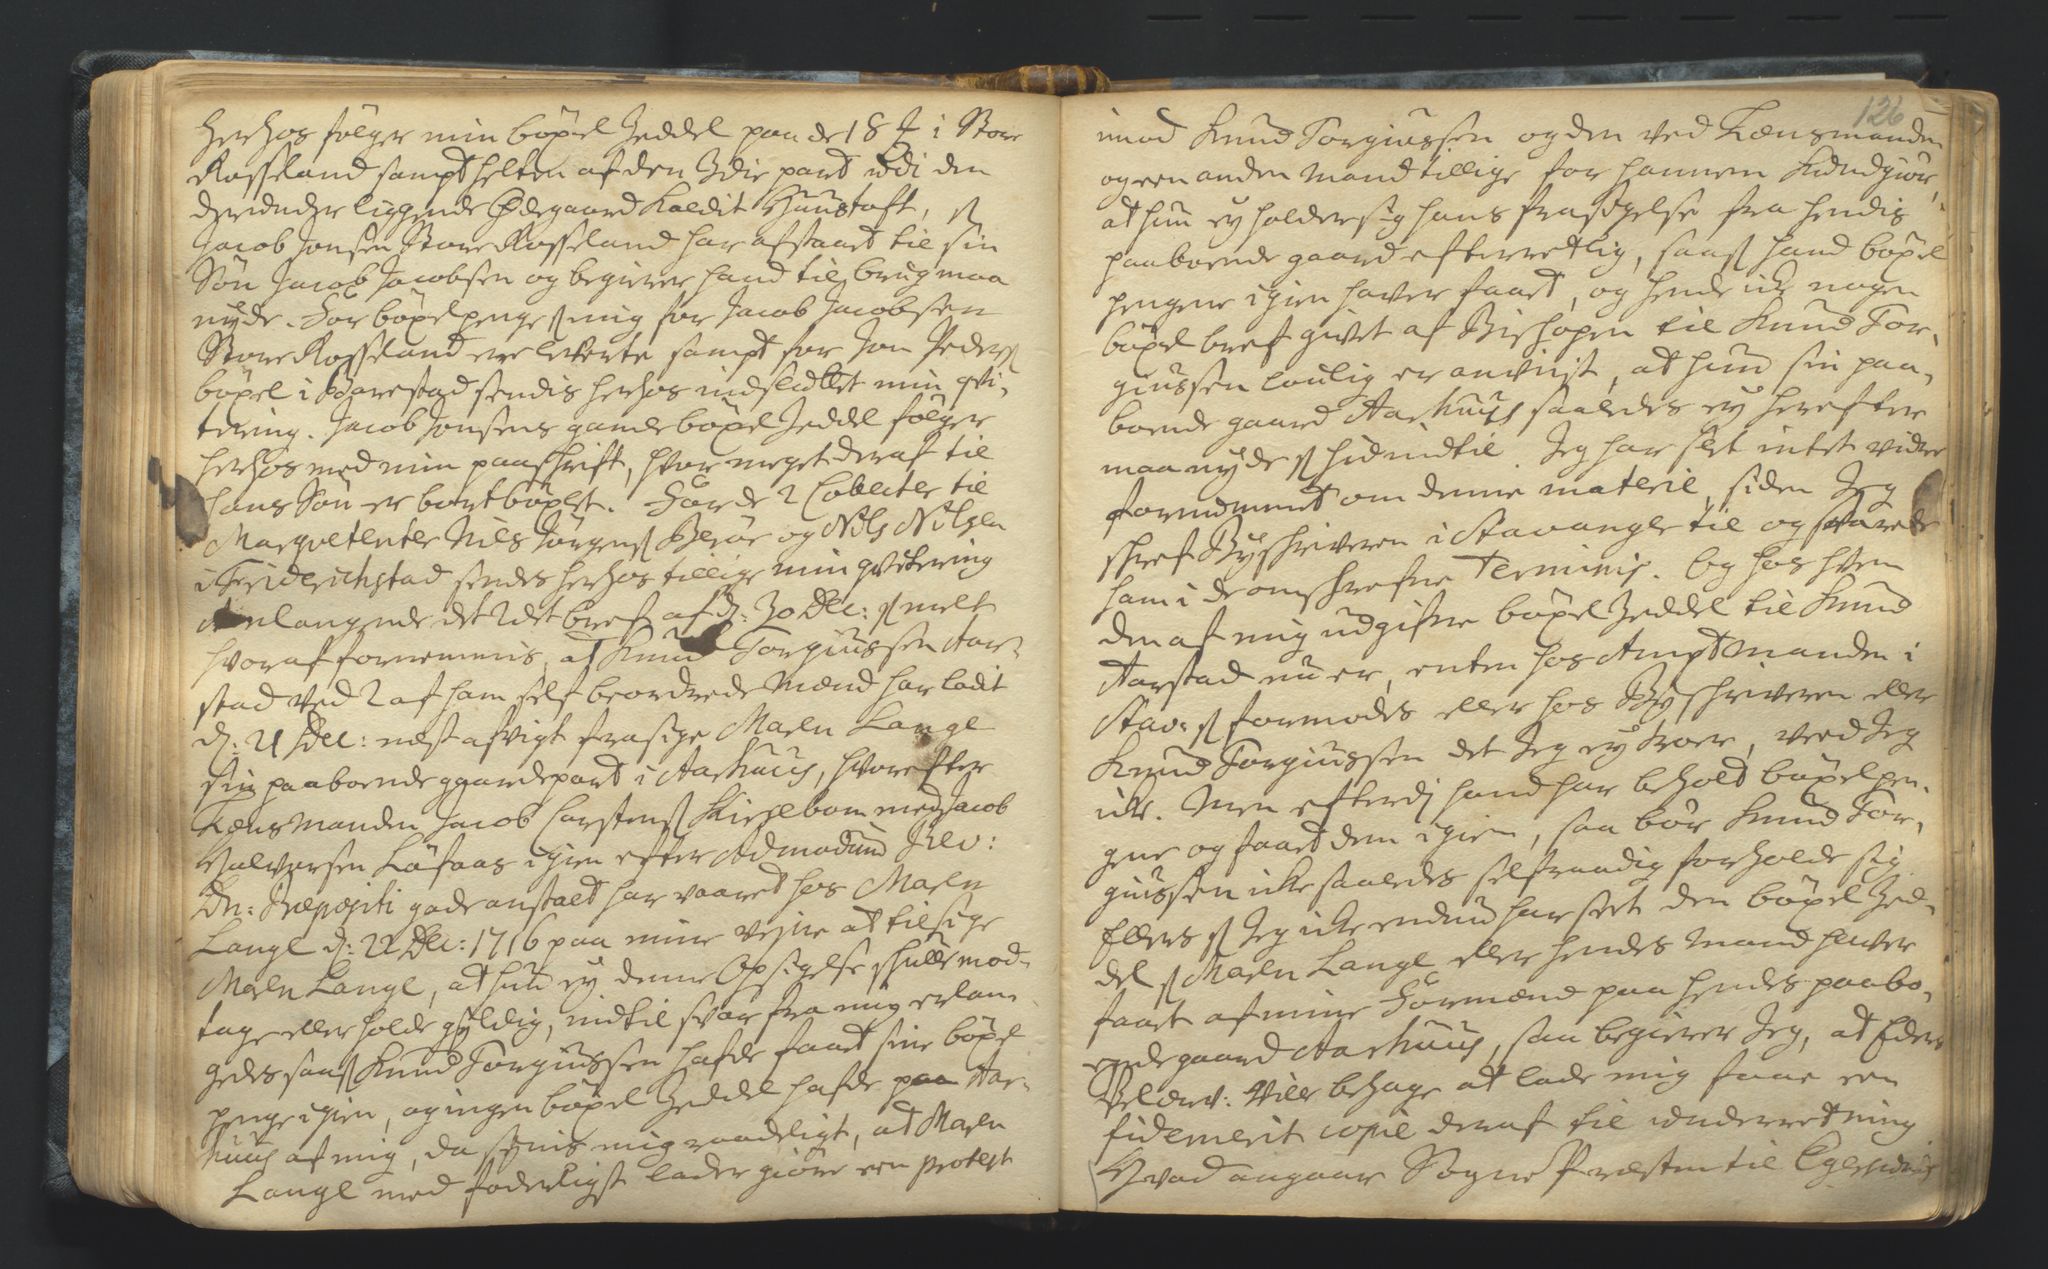 herhos følger min böxel Zeddel paa de 18 i Store
Rossland sampt helten af den 3die part udi den
derunder liggende Ødegaard Kaldit Huustoft, s
Jacob Jonsen Store Rossland har afstaaet til sin
Søn Jacob Jacobsen og begierer hand til brug maa
nyde. For böxelpenge s mig for Jacob Jacobsen
Store Rossland ere leverte sampt for Jon Peders
böxel i Barestad sendis herhos indsluttet min qvi-
tering. Jacob Jonsens gamle böxel Zeddel følger
herhos med min paaschrift, hvor meget deraf til
hans Søn er bortböxlet. For de 2 Cobliter til
Marqvetenter Nils Jørgens Berøe og Nils Nilsen
i Friderichstad sendes herhos tillige min qvitering
Anlangende det 2det bref af d: 30 Dec: s melt
hvoraf fornemmis, at Knud Torgiussen Aar-
stad ved 2 af ham self beordrede Mænd har ladit
d: 21 Dec: nest afvigt frasige Maren Lange
sin paaboende gaardepart i Aarhuus, hvorefter
Lensmanden Jacob Carstens Kieelbom med Jacob
Halvorsen Løfaas igien efter Admodum Rev:
Dn: Præpositi gode anstalt har vaaret hos Maren
Lange d: 22 Dec: 1716 paa mine veyne at tilsige
Maren Lange, at hun ey denne Opsigelse schulle mod-
tage eller holde gyldig, indtil svar fra mig erlan-
gedes saas Knud Torgiussen hafde faaet sine böxel
penge igien, og ingen böxel Zeddel hafde paa Aar-
huus af mig, da synis mig raadeligt, at Maren
Lange med foderligst lader giøre een protest
126
imod Knud Torgiussen og den ved Lensmanden
og een anden Mand tillige for hannem Kundgiør,
at hun ey holder sig hans frasigelse fra hendis
paaboende gaard efterretlig, saas hand böxel
pengene igien haver faaet, og hende ick nogen
böxel bref givet af Bishopen til Knud Tor-
giussen lovlig er anviist, at hun sin paa-
boende gaard Aarhuus saaledes ey herefter
maa nyde s hidindtil. Jeg har slet intet videre
fornummet om denne materie, siden Jeg
schref Byschriveren i Stavanger til og svarede
ham i de omschrefne Terminis. Og hos hvem
den af mig udgifne böxel Zeddel til Knud
Aarstad nu er, enten hos Amptmanden i
Stav: s formodes eller hos Byschriveren eller
Knud Torgiussen det Jeg ey troer, veed Jeg
ick. Men efterdj hand har beholdt böxelpen-
gene og faaet dem igien, saa bør Knud Tor-
giussen icke saaledes selfraadig forholde sig
Ellers s Jeg icke endnu har seet den böxel Zed-
del s Maren Lange eller hendes Mand haver
faaet af mine Formænd paa hendes paabo-
ende gaard Aarhuus, saa begierer Jeg, at Eders
Velærv: ville behage at lade mig faae een
fidemerit copie deraf til underretning
Hvad angaar Sogne Præsten til Egersund